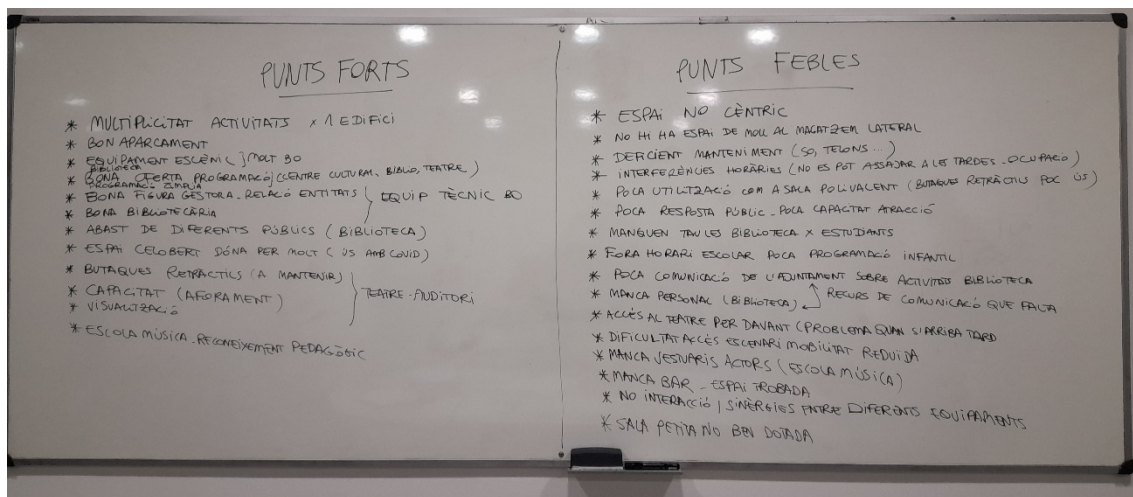 PUNTS FORTS
* MULTIPLICITAT ACTIVITATS x 1 EDIFICI
* BON APARCAMENT
* EQUIPAMENT ESCÈNIC ] MOLT BO
BIBLIOTECA
* BONA OFERTA PROGRAMACIÓ (CENTRE CULTURAL, BIBLIO, TEATRE)
PROGRAMACIÓ AMPLIA
* BONA FIGURA GESTORA - RELACIÓ ENTITATS
* BONA BIBLIOTECÀRIA
EQUIP TÈCNIC BO
* ABAST DE DIFERENTS PÚBLICS (BIBLIOTECA)
* ESPAI CELOBERT DÓNA PER MOLT (ÚS AMB COVID)
* BUTAQUES RETRÀCTILS (A MANTENIR)
* CAPACITAT (AFORAMENT)
* VISUALITZACIÓ
TEATRE-AUDITORI
* ESCOLA MÚSICA - RECONEIXEMENT PEDAGÒGIC
PUNTS FEBLES
* ESPAI NO CÈNTRIC
* NO HI HA ESPAI DE MOLL AL MAGATZEM LATERAL
* DEFICIENT MANTENIMENT (SO, TELONS...)
* INTERFERÈNCIES HORÀRIES (NO ES POT ASSAJAR A LES TARDES - OCUPACIÓ)
* POCA UTILITZACIÓ COM A SALA POLIVALENT (BUTAQUES RETRÀCTILS POC ÚS)
* POCA RESPOSTA PÚBLIC - POCA CAPACITAT ATRACCIÓ
* MANQUEN TAULES BIBLIOTECA x ESTUDIANTS
* FORA HORARI ESCOLAR POCA PROGRAMACIÓ INFANTIL
* POCA COMUNICACIÓ DE L'AJUNTAMENT SOBRE ACTIVITATS BIBLIOTECA
* MANCA PERSONAL (BIBLIOTECA) RECURS DE COMUNICACIÓ QUE FALTA
* ACCÉS AL TEATRE PER DAVANT (PROBLEMA QUAN S'ARRIBA TARD
* DIFICULTAT ACCÉS ESCENARI MOBILITAT REDUIDA
* MANCA VESTUARIS ACTORS (ESCOLA MÚSICA)
* MANCA BAR - ESPAI TROBADA
* NO INTERACCIÓ / SINÈRGIES ENTRE DIFERENTS EQUIPAMENTS
* SALA PETITA NO BEN DOTADA